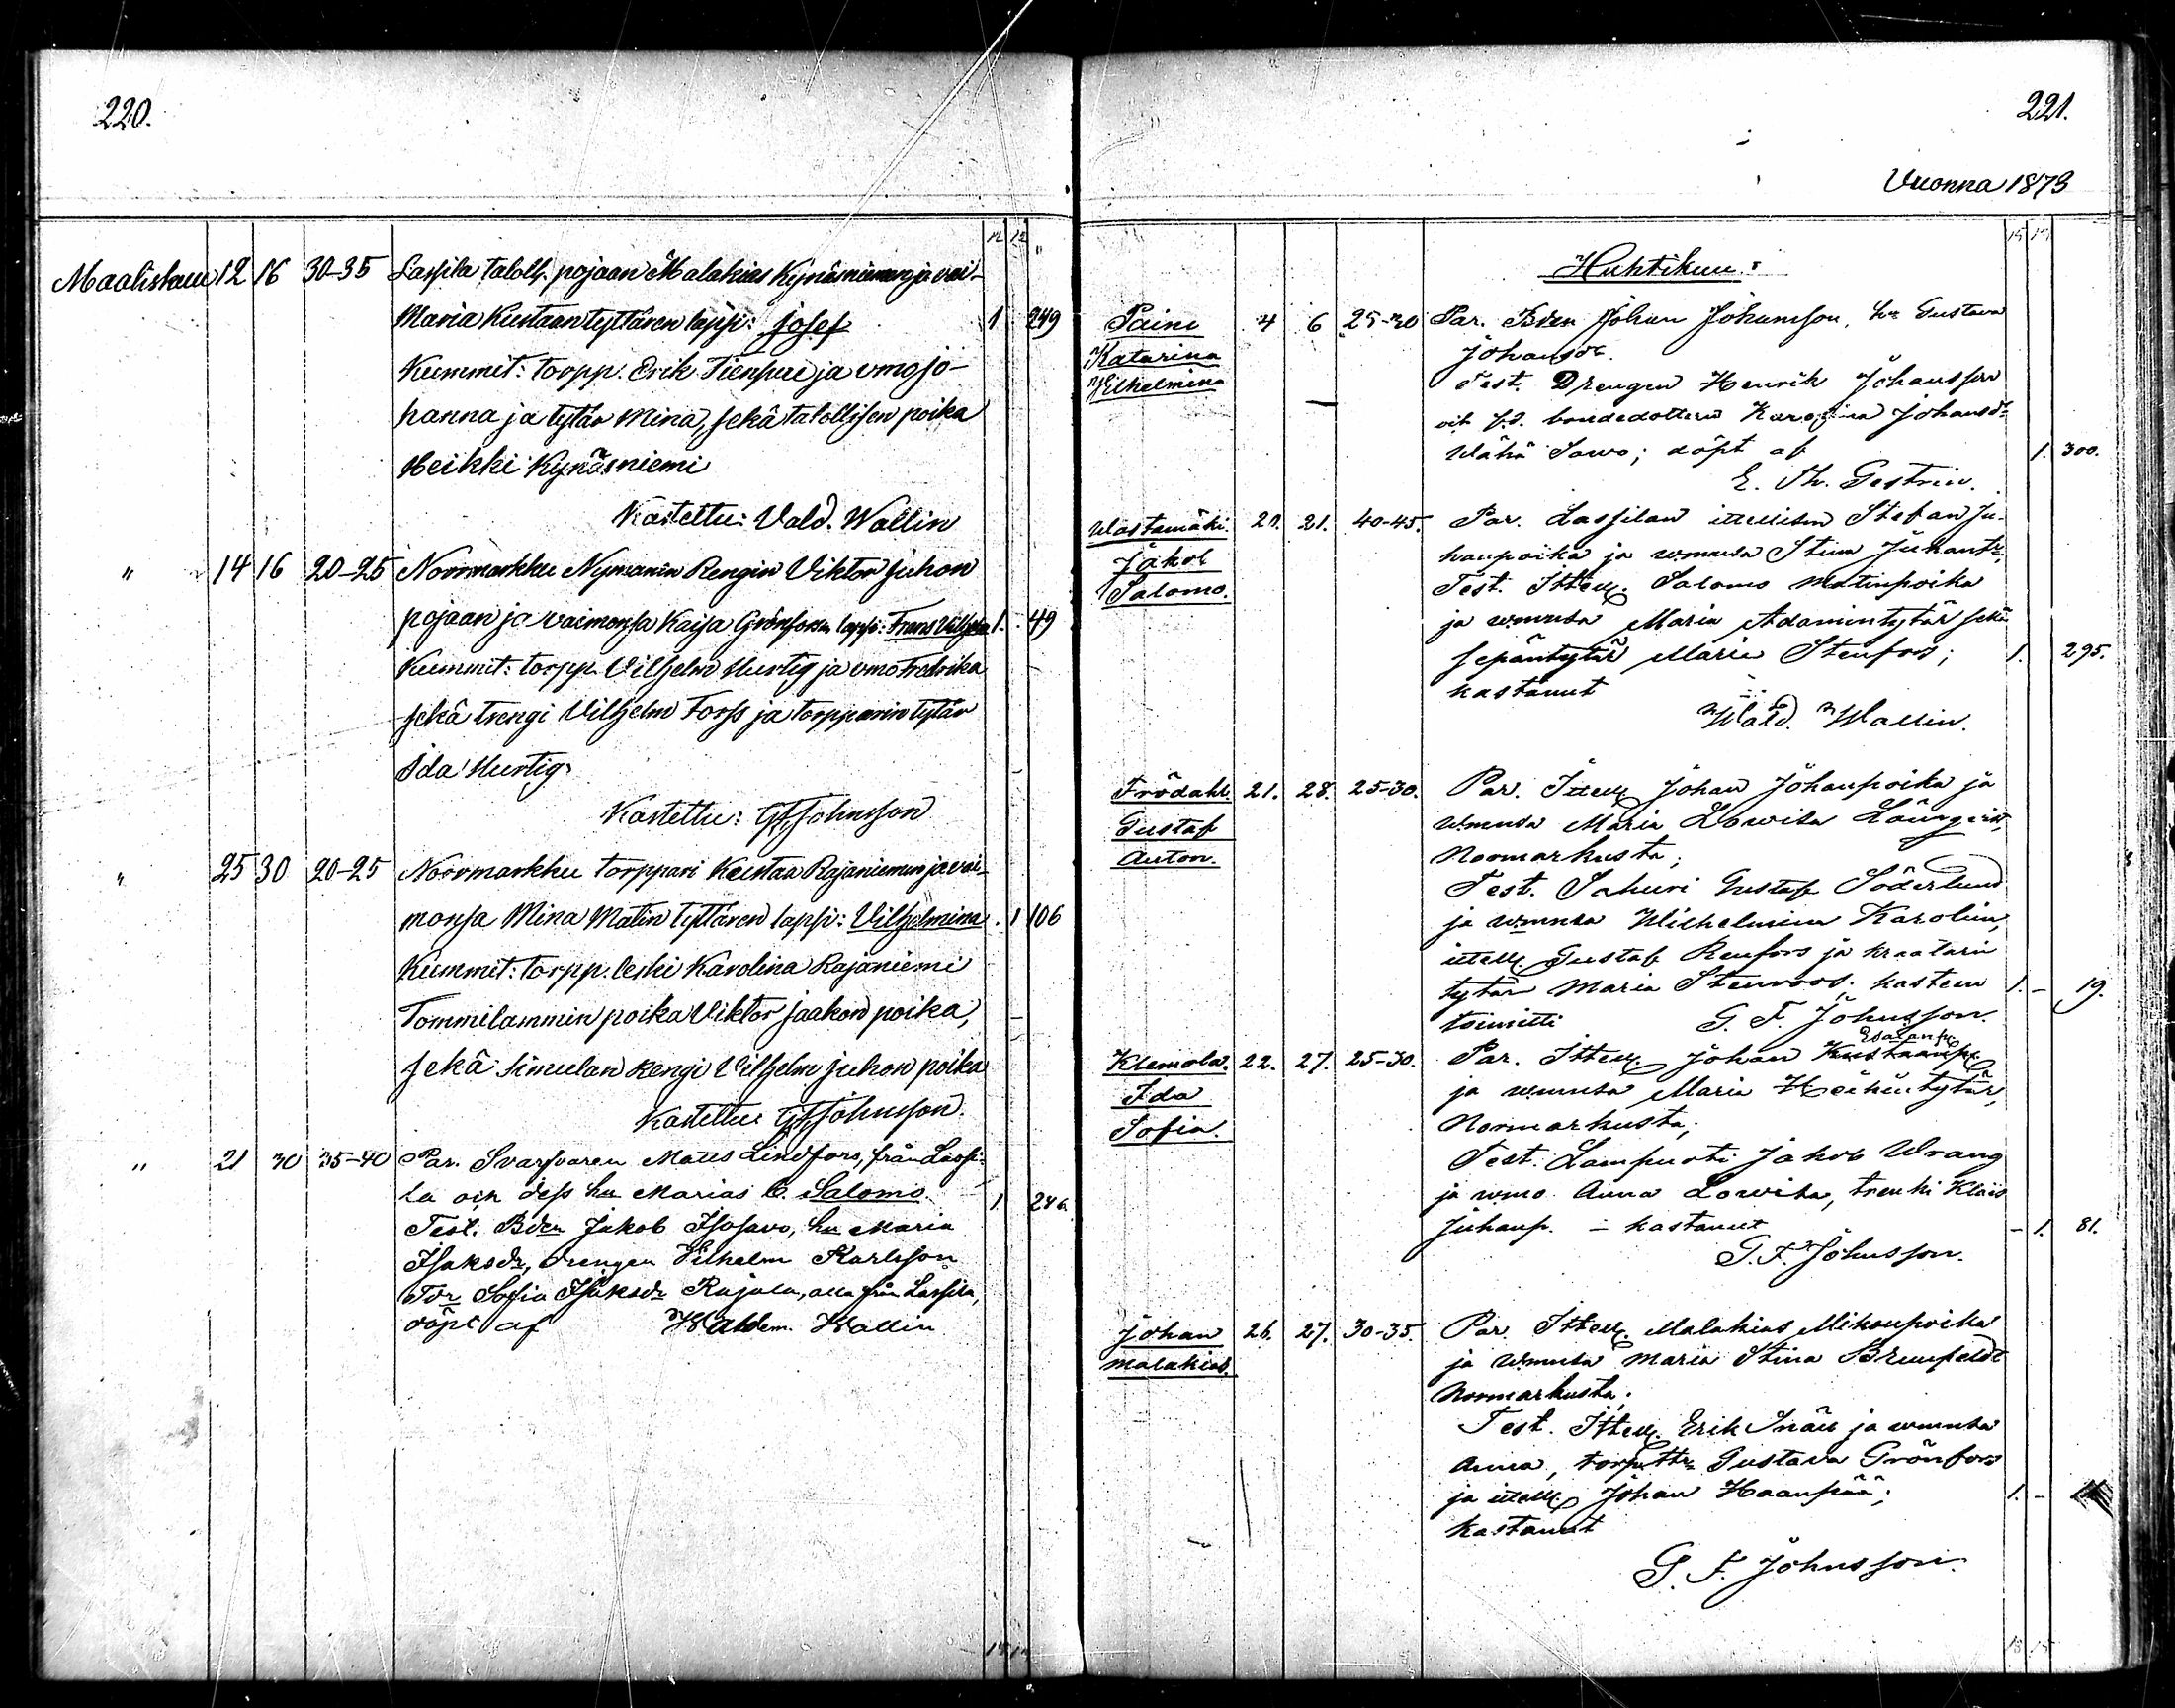 220.
12 12
Maaliskuu 12 16 30-35 Lassila talolls. pojaan Malakias Kynäsniemen ja vai-
Maria Kustaantyttären lapsi: Josef 1 249
Kummit: torpp. Erik Tienpuu ja vmo jo-
hanna ja tytär Mina, sekä talollisen poika
Heikki Kynäsniemi
Kastettu: Vald. Wallin
" 14 16 20-25 Norrmarkku Nymanin Rengin Viktor juhon
pojaan ja vaimonsa Kaisa Grönforsin lapsi: Frans Viljelm 1. 49
Kummit: torpp. Vilhelm Hurtig ja vmo Fredrika
sekä trengi Vilhelm Forss ja torpparin tytär
Ida Hurtig
Kastettu: G.F. Johnsson
" 25 30 20-25 Norrmarkku torppari Kustaa Rajaniemen ja vai-
monsa Mina Matin tyttären lapsi: Vilhelmina . 1 106
Kummit: torpp. leski Karolina Rajaniemi
Tommilammin poika Viktor jaakon poika,
sekä Simulan Rengi Vilhelm juhon poika
Kastettu G.F. Johnsson.
" 21 30 35-40 Par. Svarfvaren Matts Lindfors, från Lassi-
la och dess hu Marias b. Salomo. 1 246.
Test. Bden Jakob Isosavo, hu Maria
Isaksdr, drengen Vilhelm Karlsson
Tdr Sofia Isaksdr Rajala, alla från Lassila,
döpt af Waldem. Wallin
221.
Vuonna 1873
Huhtikuu:
Paini 4 6 25-30 Par. Bden Johan Johansson, hu Gustava
Katarina Johansdr.
Wilhelmina Test. Drengen Henrik Johansson
och f.d. bondedottern Karolina Johansdr
Wähä Sawo; döpt af 1. 300.
E. Th. Gestrin.
Wastamäki 20. 21. 40-45. Par. Lassilan ittellisen Stefan Ju-
Jakob hanpoika ja wmnsa Stina Juhantr.
Salomo. Test. Ittell. Salomo Matinpoika
ja wmnsa Maria Adamintytär sekä
sepäntytär Maria Stenfors; 1. 295.
kastanut
Wald. Wallin.
Frödahl. 21. 28. 25-30. Par. Ittell. Johan Johanpoika ja
Gustaf wmnsa Maria Lowisa
Anton. Normarkusta;
Test. Sahuri Gustaf Söderlund
ja wmnsa Wilhelmina Karolina,
ittell. Gustaf Renfors ja kraatarin
tytär Maria Stenroos; kasteen 1. - 19.
toimitti G. F. Johnsson.
Esaianp.
Klemola. 22. 27. 25-30. Par. Ittell. Johan Kustaanp.
Ida ja wmnsa Maria Heikintytär,
Sofia. Normarkusta;
Test. Lampuoti Jakob Wrang
ja wmo Anna Lowisa, trenki Kláis
Juhanp. - kastanut - 1. 81.
G. F. Johnsson.
Johan 26. 27. 30-35. Par. Ittell. Malakias Mikonpoika
Malakias. ja wmnsa Maria Stina Brunfeldt
Normarkusta;
Test. Ittell. Erik Inäs ja wmnsa
Anna, torp. ttr. Gustava Grönfors
ja ittell. Johan Haanpää; 1. -
kastanut
G. F. Johnsson.